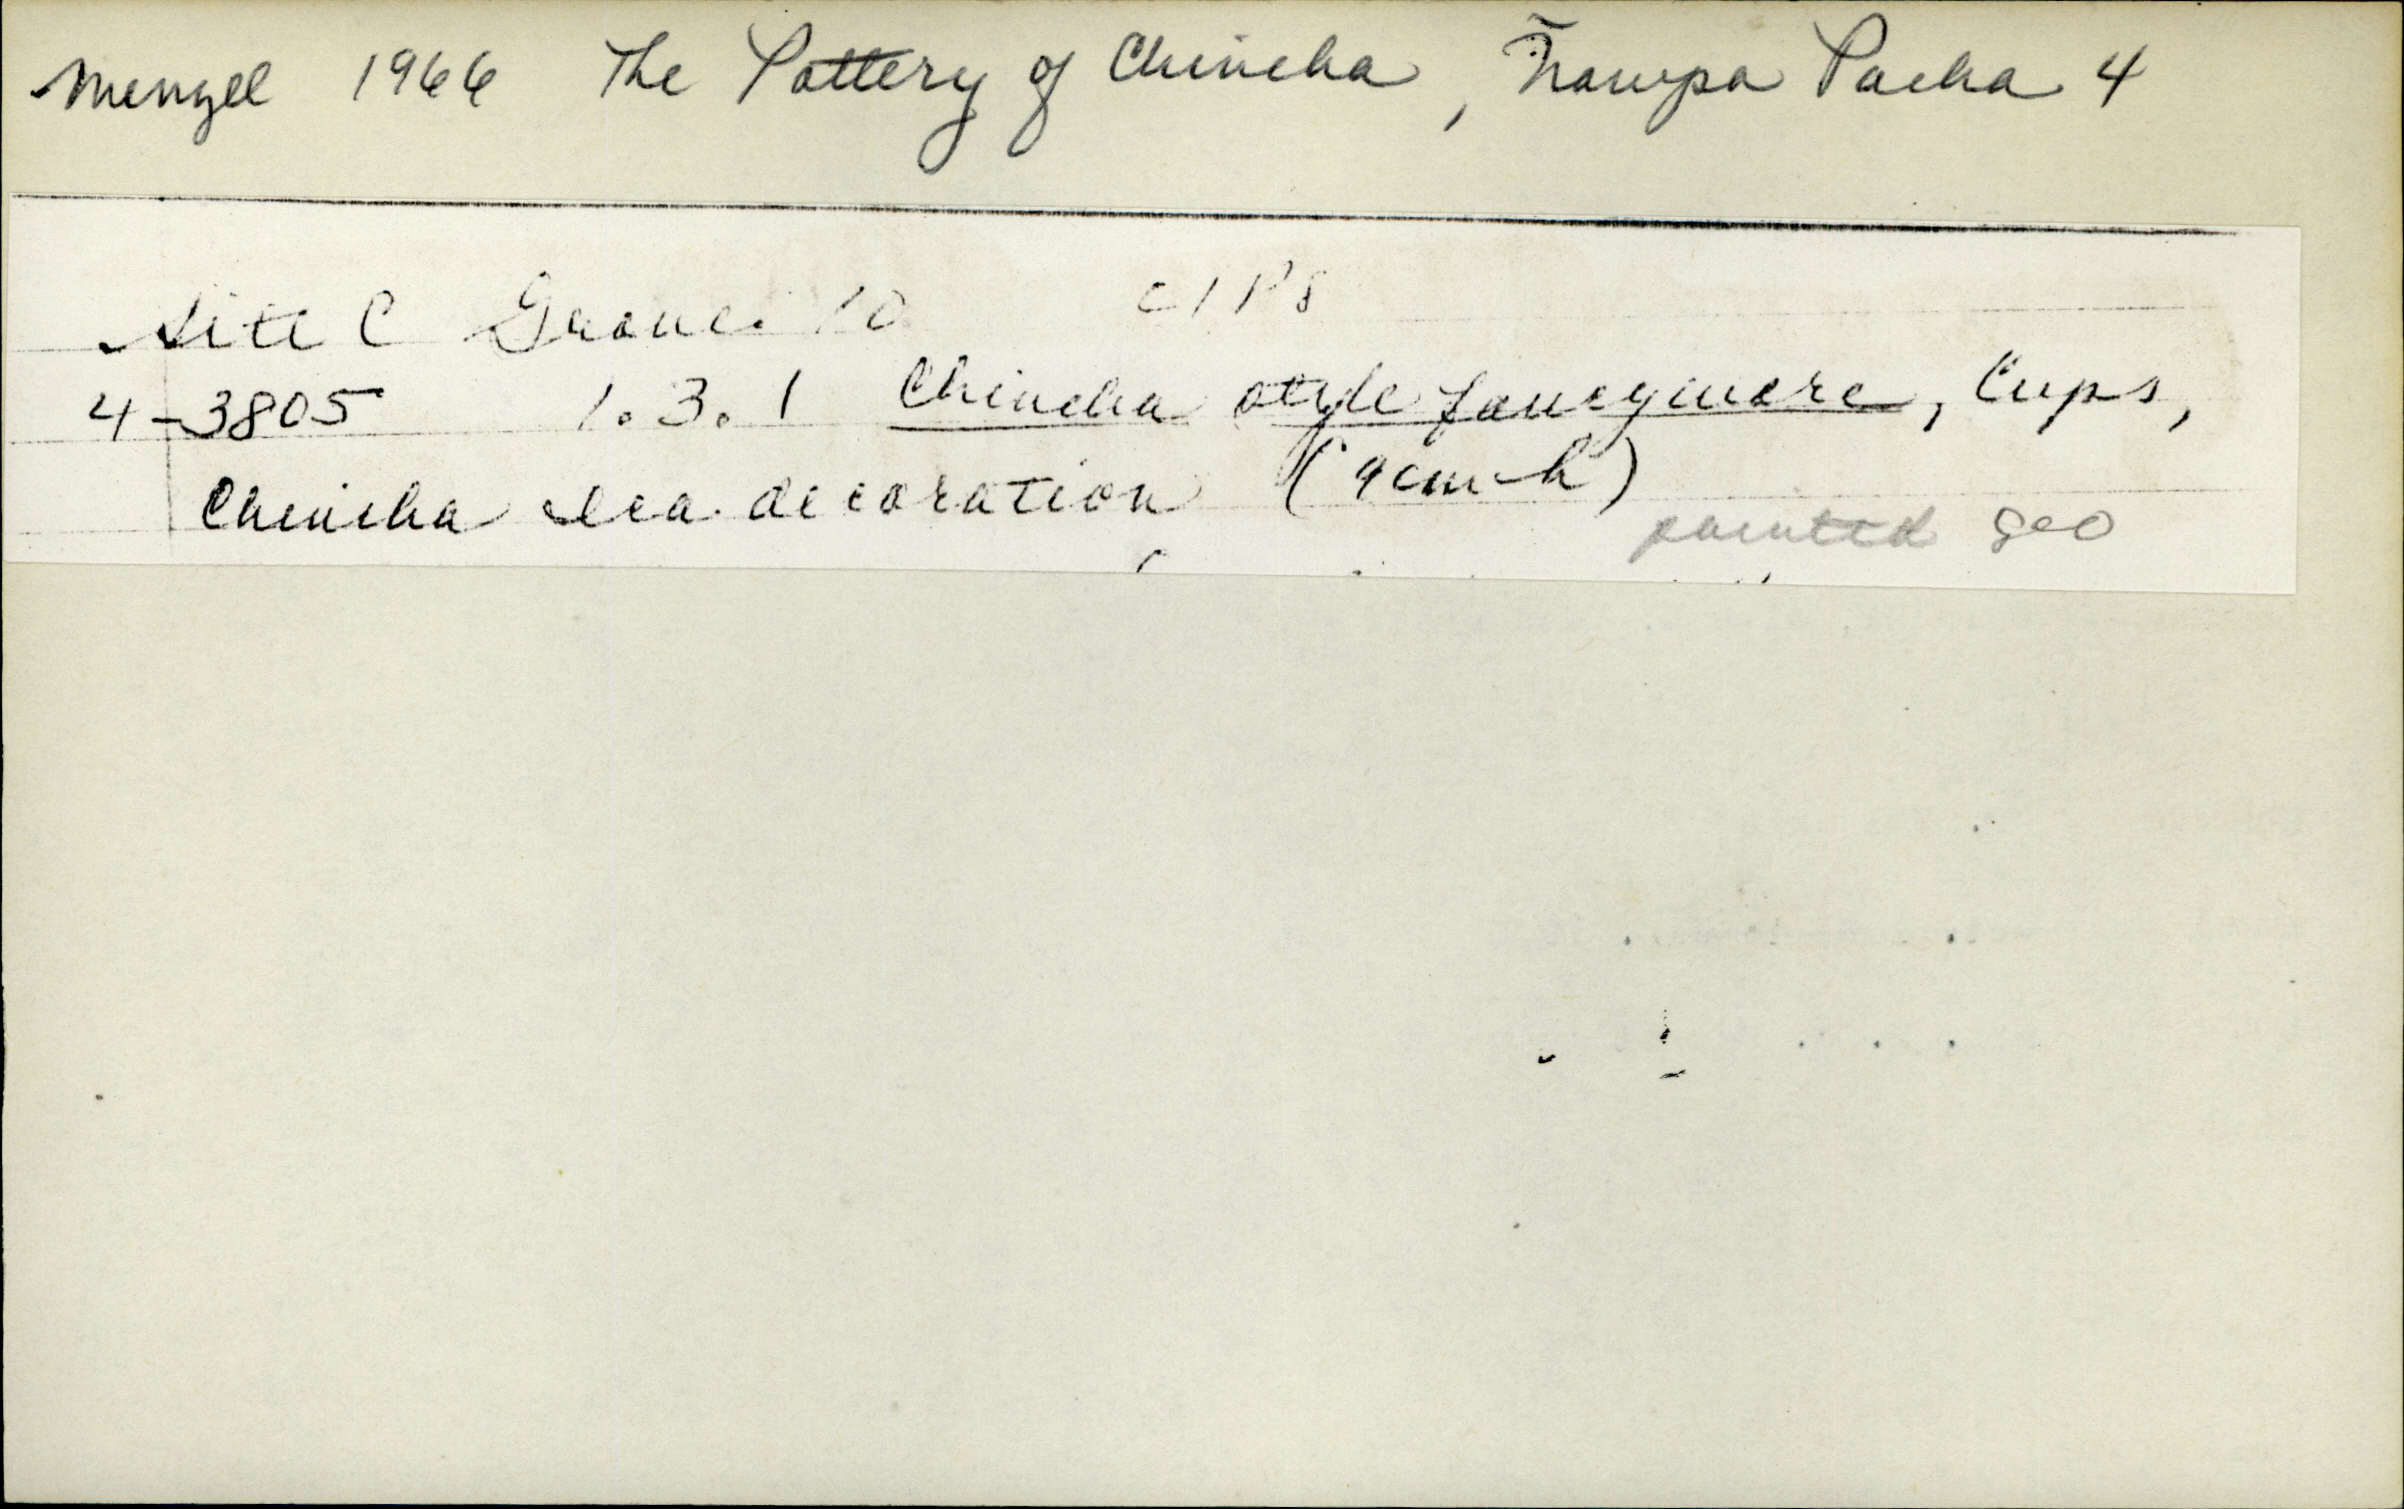 Menzel 1966 The Pottery of Chincha, Ñawpa Pacha 4
Site C Grave 10
4-3805 1.3.1 Chincha style fancyware, Cups,
Chincha Ica decoration (9cm h)
painted geo